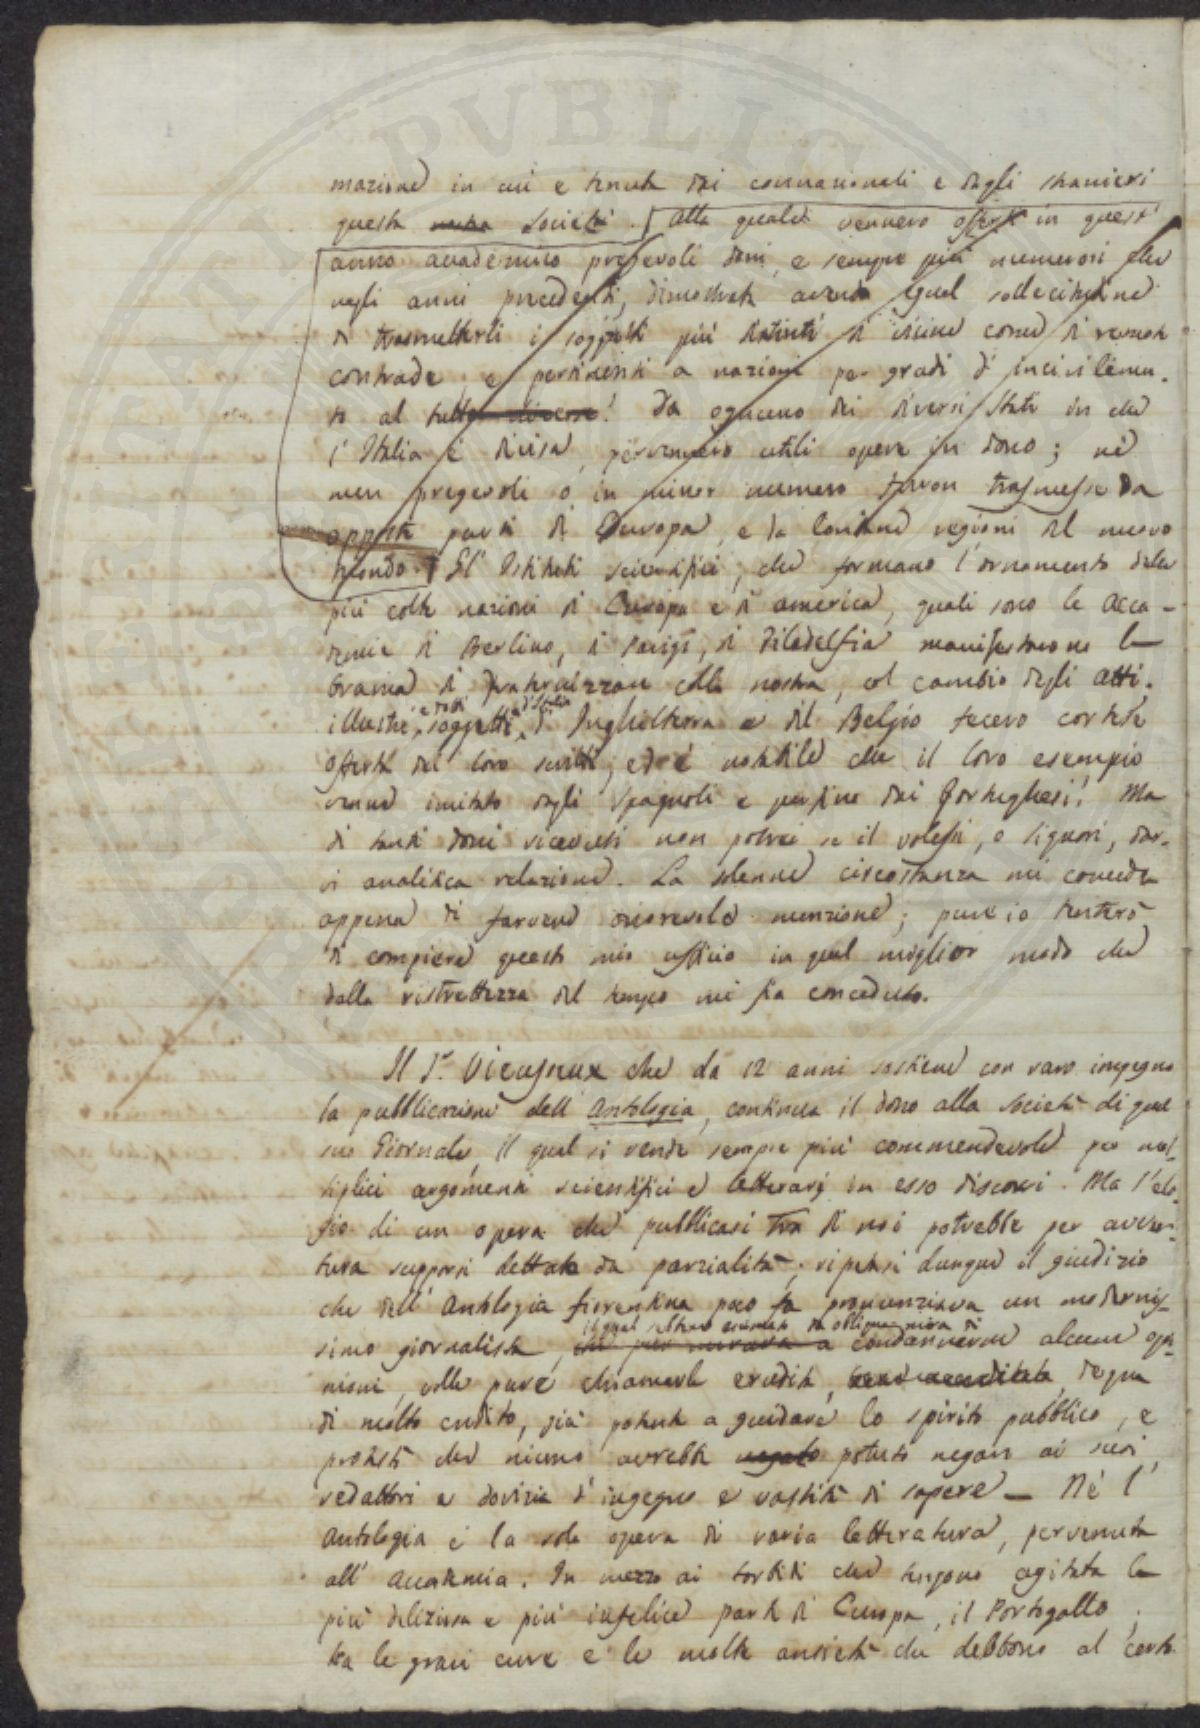 mazione in cui è tenuta dai connazionali e dagli stranieri
questa nostra Società. Alla quale vennero offerti in quest'
anno accademico pregevoli doni, e sempre più numerosi che
negli anni precedenti, dimostrata avendo egual sollecitudine
di trasmetterli i soggetti più distinti di vicine come di remote
contrade, e pertinenti a nazioni per gradi d'incivilimen-
to al tutto diverse! Da ognuno dei diversi Stati in che
l'Italia è divisa, pervennero utili opere in dono; nè
men pregevoli o in minor numero furon trasmesse da
opposte parti di Europa, e da lontane regioni del nuovo
Mondo. Gl' Istituti scientifici, che formano l'ornamento delle
più colte nazioni di Europa e di America, quali sono le Acca-
demie di Berlino, di Parigi, di Filadelfia manifestarono la
brama di fraternizzare colla nostra, col cambio degli Atti.
illustri, e dotti soggetti, d'Italia d'Inghilterra e del Belgio fecero cortese
offerta dei loro scritti, ed è notabile che il loro esempio
venne imitato dagli Spagnoli e perfino dai Portughesi! Ma
di tanti doni ricevuti non potrei se il volessi, o Signori, dar-
vi analitica relazione. La solenne circostanza mi concede
appena di farvene onorevole menzione; pure io tenterò
di compiere questo mio ufficio in quel miglior modo che
dalla ristrettezza del tempo mi fia conceduto.
Il Sr. Vieusseux che da 12 anni sostiene con raro impegno
la pubblicazione dell' Antologia, continua il dono alla Società di quel
suo Giornale, il qual si rende sempre più commendevole per mol-
tiplici argomenti scientifici e letterarj in esso discorsi. Ma l'elo-
gio di un opera che pubblicasi tra di noi potrebbe per avven-
tura supporsi dettato da parzialità; ripetasi dunque il giudizio
che dell' Antologia fiorentina poco fa pronunziava un modernis-
simo giornalista,
il qual sebbene
mira di
che pur mirava a condannarne alcune opi-
nioni, volle pure chiamarla erudita, degna
di molto credito, già potente a guidare lo spirito pubblico, e
protestò che niuno avrebbe negato potuto negare ai suoi
redattori e dovizia d'ingegno e vastità di sapere — Nè l'
Antologia è la sola opera di varia letteratura, pervenuta
all' Accademia. In mezzo ai torbidi che tengono agitata la
più deliziosa e più infelice parte di Europa, il Portogallo,
tra le gravi cure e le molte ansietà che debbono al certo